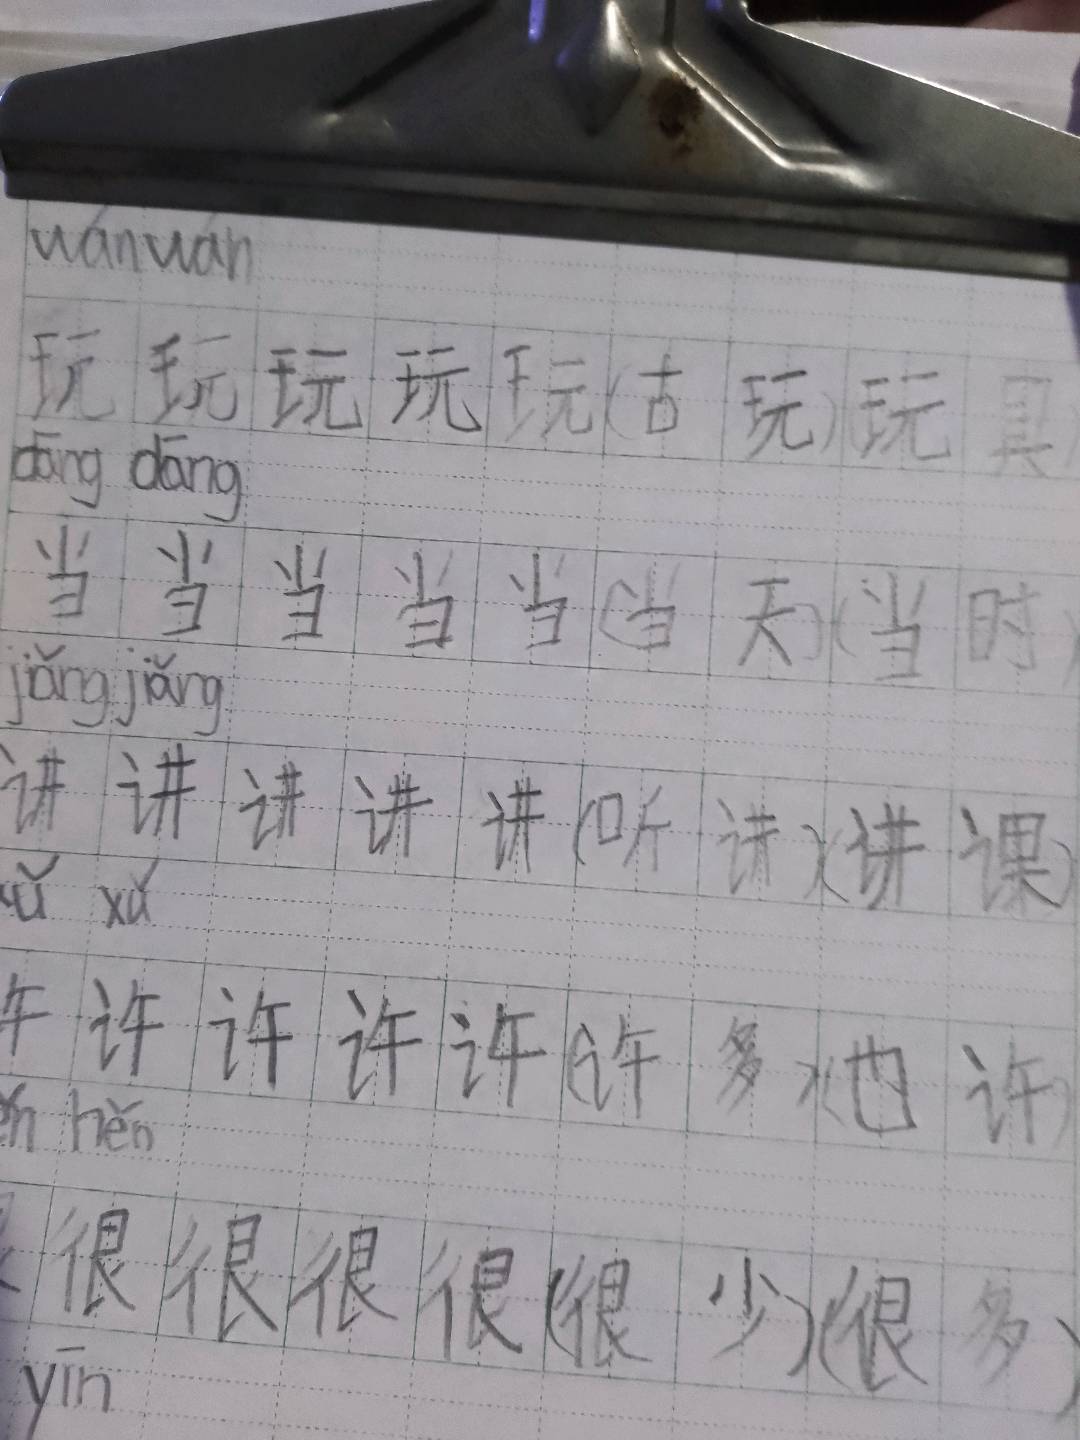 wánwán
玩玩玩玩玩(古玩)(玩具)
dāng dāng
当当当当当(当天)(当时)
jiǎng jiǎng
讲讲讲讲讲(听讲)(讲课)
xǔ
许许许许(许多)(也许)
hěn
很很很很(很少)(很多)
yīn